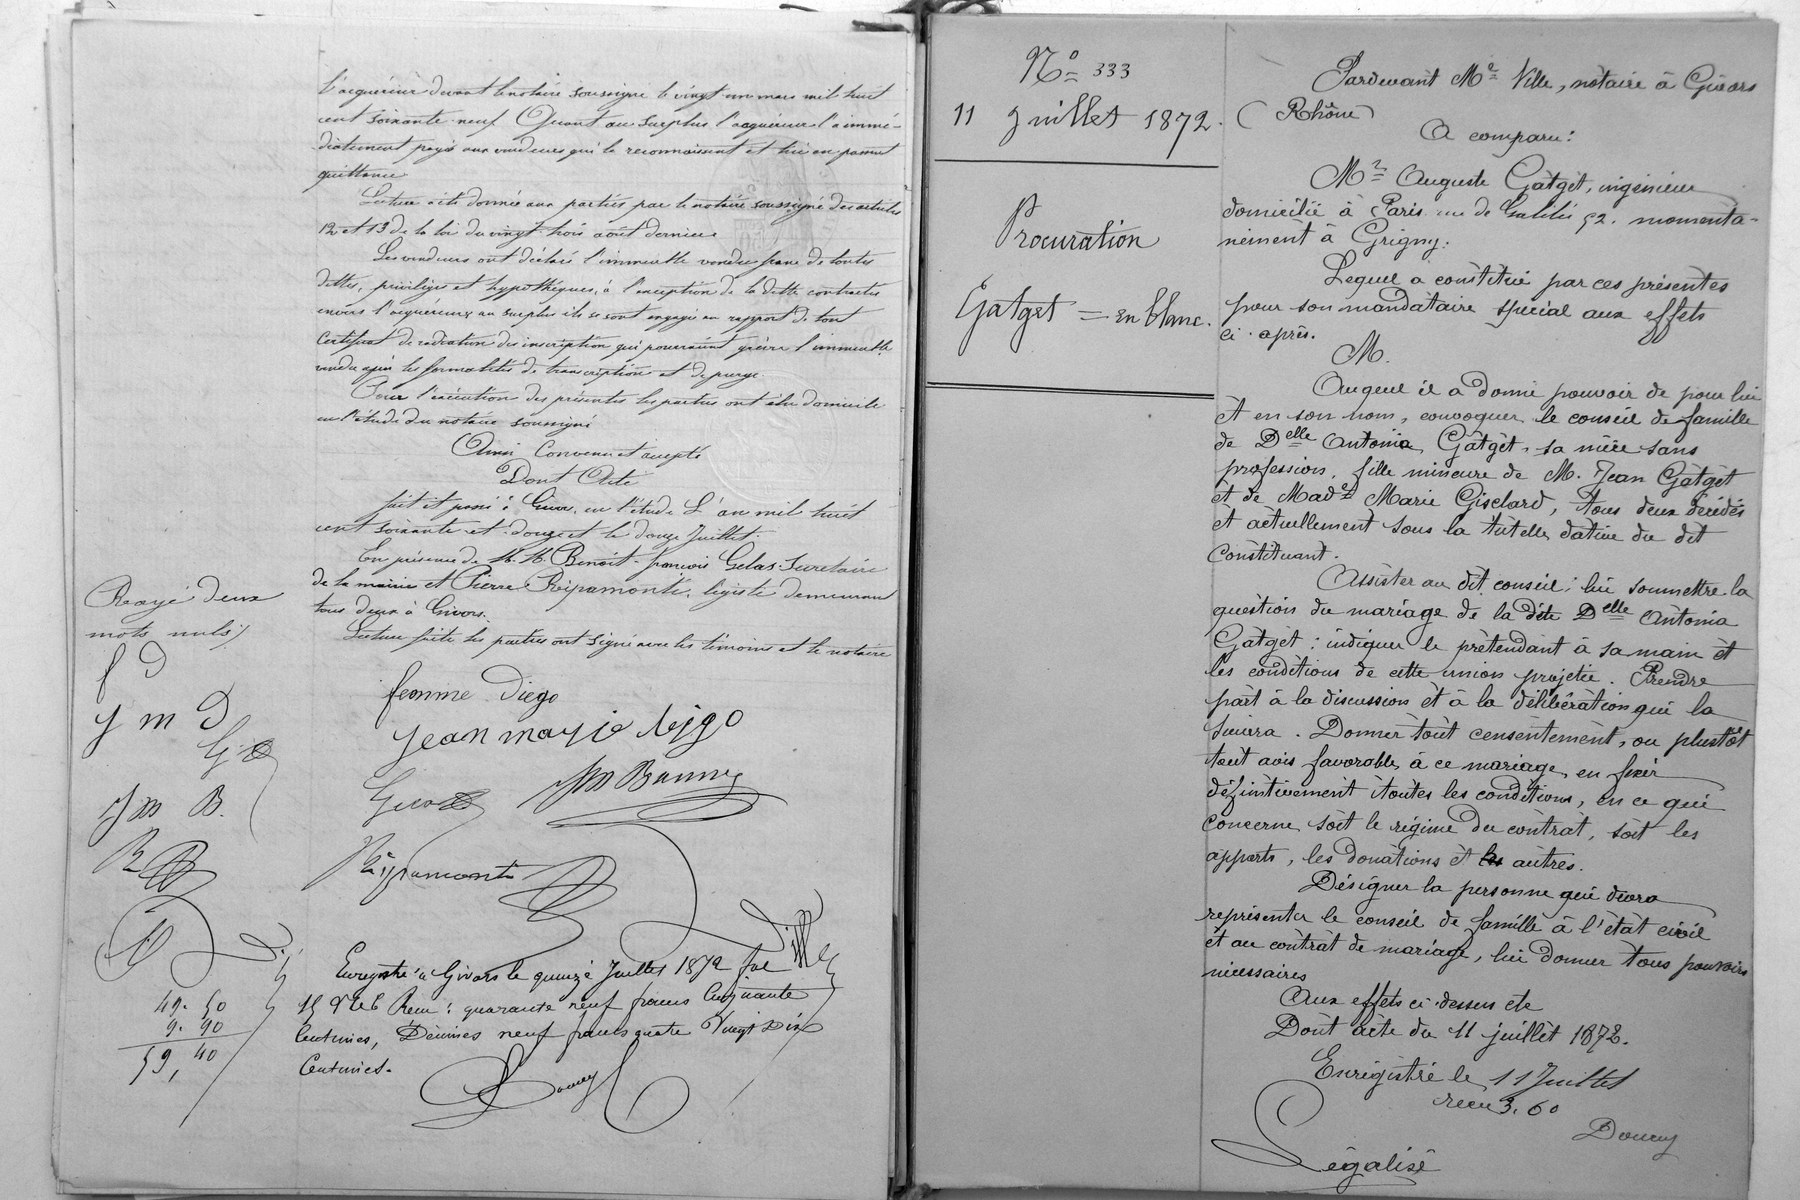 l'acquéreur devant le notaire soussigné le vingt un mars mil huit
cent soixante-neuf Quant au surplus l'acquéreur l'a immé-
diatement payé aux vendeurs qui le reconnaissent et lui en passent
quittance
Lecture a été donnée aux parties par le notaire soussigné des articles
12 et 13 de la loi du vingt-trois août dernier
Les vendeurs ont déclaré l'immeuble vendu franc de toutes
dettes, privilèges et hypothèques, à l'exception de la dette contractée
envers l'acquéreur; au surplus ils se sont engagé au rapport de tout
certificat de radiation des inscription qui pourraient grever l'immeuble
vendu après les formalités de transcription et de purge
Pour l'exécution des présentes les parties ont élu domicile
en l'étude du notaire soussigné
Ainsi Convenu et accepté
Dont Acte
fait et passé à Givors, en l'étude L'an mil huit
cent soixante et douze et le douze Juillet.
En présence de M.M. Benoit-françois Gelas Secretaire
de la mairie et Pierre Ripamonti, légiste demeurant
tous deux à Givors.
Lecture faite les parties ont signé avec les témoins et le notaire
Rayé deux
mots nuls
f D
J m D
J M B.
femme Diego
jean marie diego
JM Bonny
Ripamonti
Ville
Enregistré à Givors le quinze Juillet 1872 fol
15 Reçu : quarante neuf francs Cinquante
Centimes, Décimes neuf francs quatre Vingt Dix
Centimes.
49. 50
9. 90
59, 40
Nº 333
11 Juillet 1872.
Procuration
Gatget = en blanc.
Pardevant Me Ville, notaire à Givors
(Rhône)
A comparu :
Mr Auguste Gâtget, ingénieur
domicilié à Paris rue de Galilée 52. momenta-
nément à Grigny.
Lequel a constitué par ces présentes
pour son mandataire spécial aux effets
ci-après.
M.
Auquel il a donné pouvoir de pour lui
et en son nom, convoquer le conseil de famille
de Delle Antonia Gâtget, sa nièce sans
profession, fille mineure de M. Jean Gâtget
et de Made Marie Giselard, tous deux décédés
et actuellement sous la tutelle dative du dit
Constituant.
Assister au dit conseil ; lui soumettre la
question du mariage de la dite Delle Antonia
Gâtget : indiquer le prétendant à sa main et
les conditions de cette union projetée. Prendre
part à la discussion et à la délibération qui la
suivra. Donner tout censentement, ou plustôt
tout avis favorable à ce mariage, en fixer
définitivement toutes les conditions, en ce qui
concerne soit le régime du contrat, soit les
apports, les donations et autres.
Désigner la personne qui devra
représenter le conseil de famille à l'état civil
et au contrat de mariage, lui donner tous pouvoirs
nécessaires
Aux effets ci-dessus etc
Dont acte du 11 juillet 1872.
Enregistré le 11 Juillet
reçu 3. 60
Légalisé